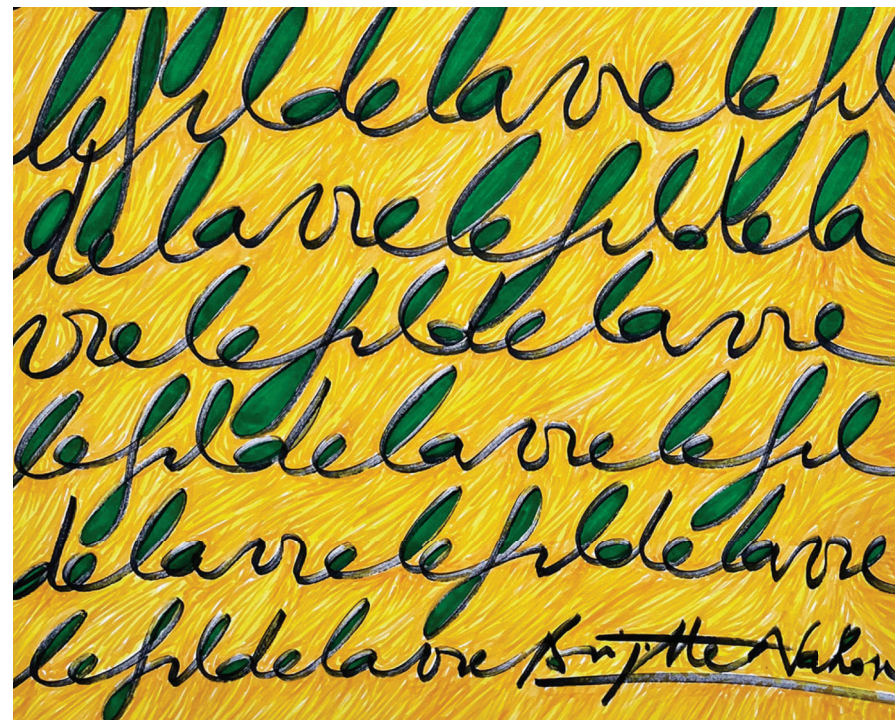 le fil de la vie le fil
de la vie le fil de la
vie le fil de la vie
le fil de la vie le fil
de la vie le fil de la vie
le fil de la vie Brigitte Nahon